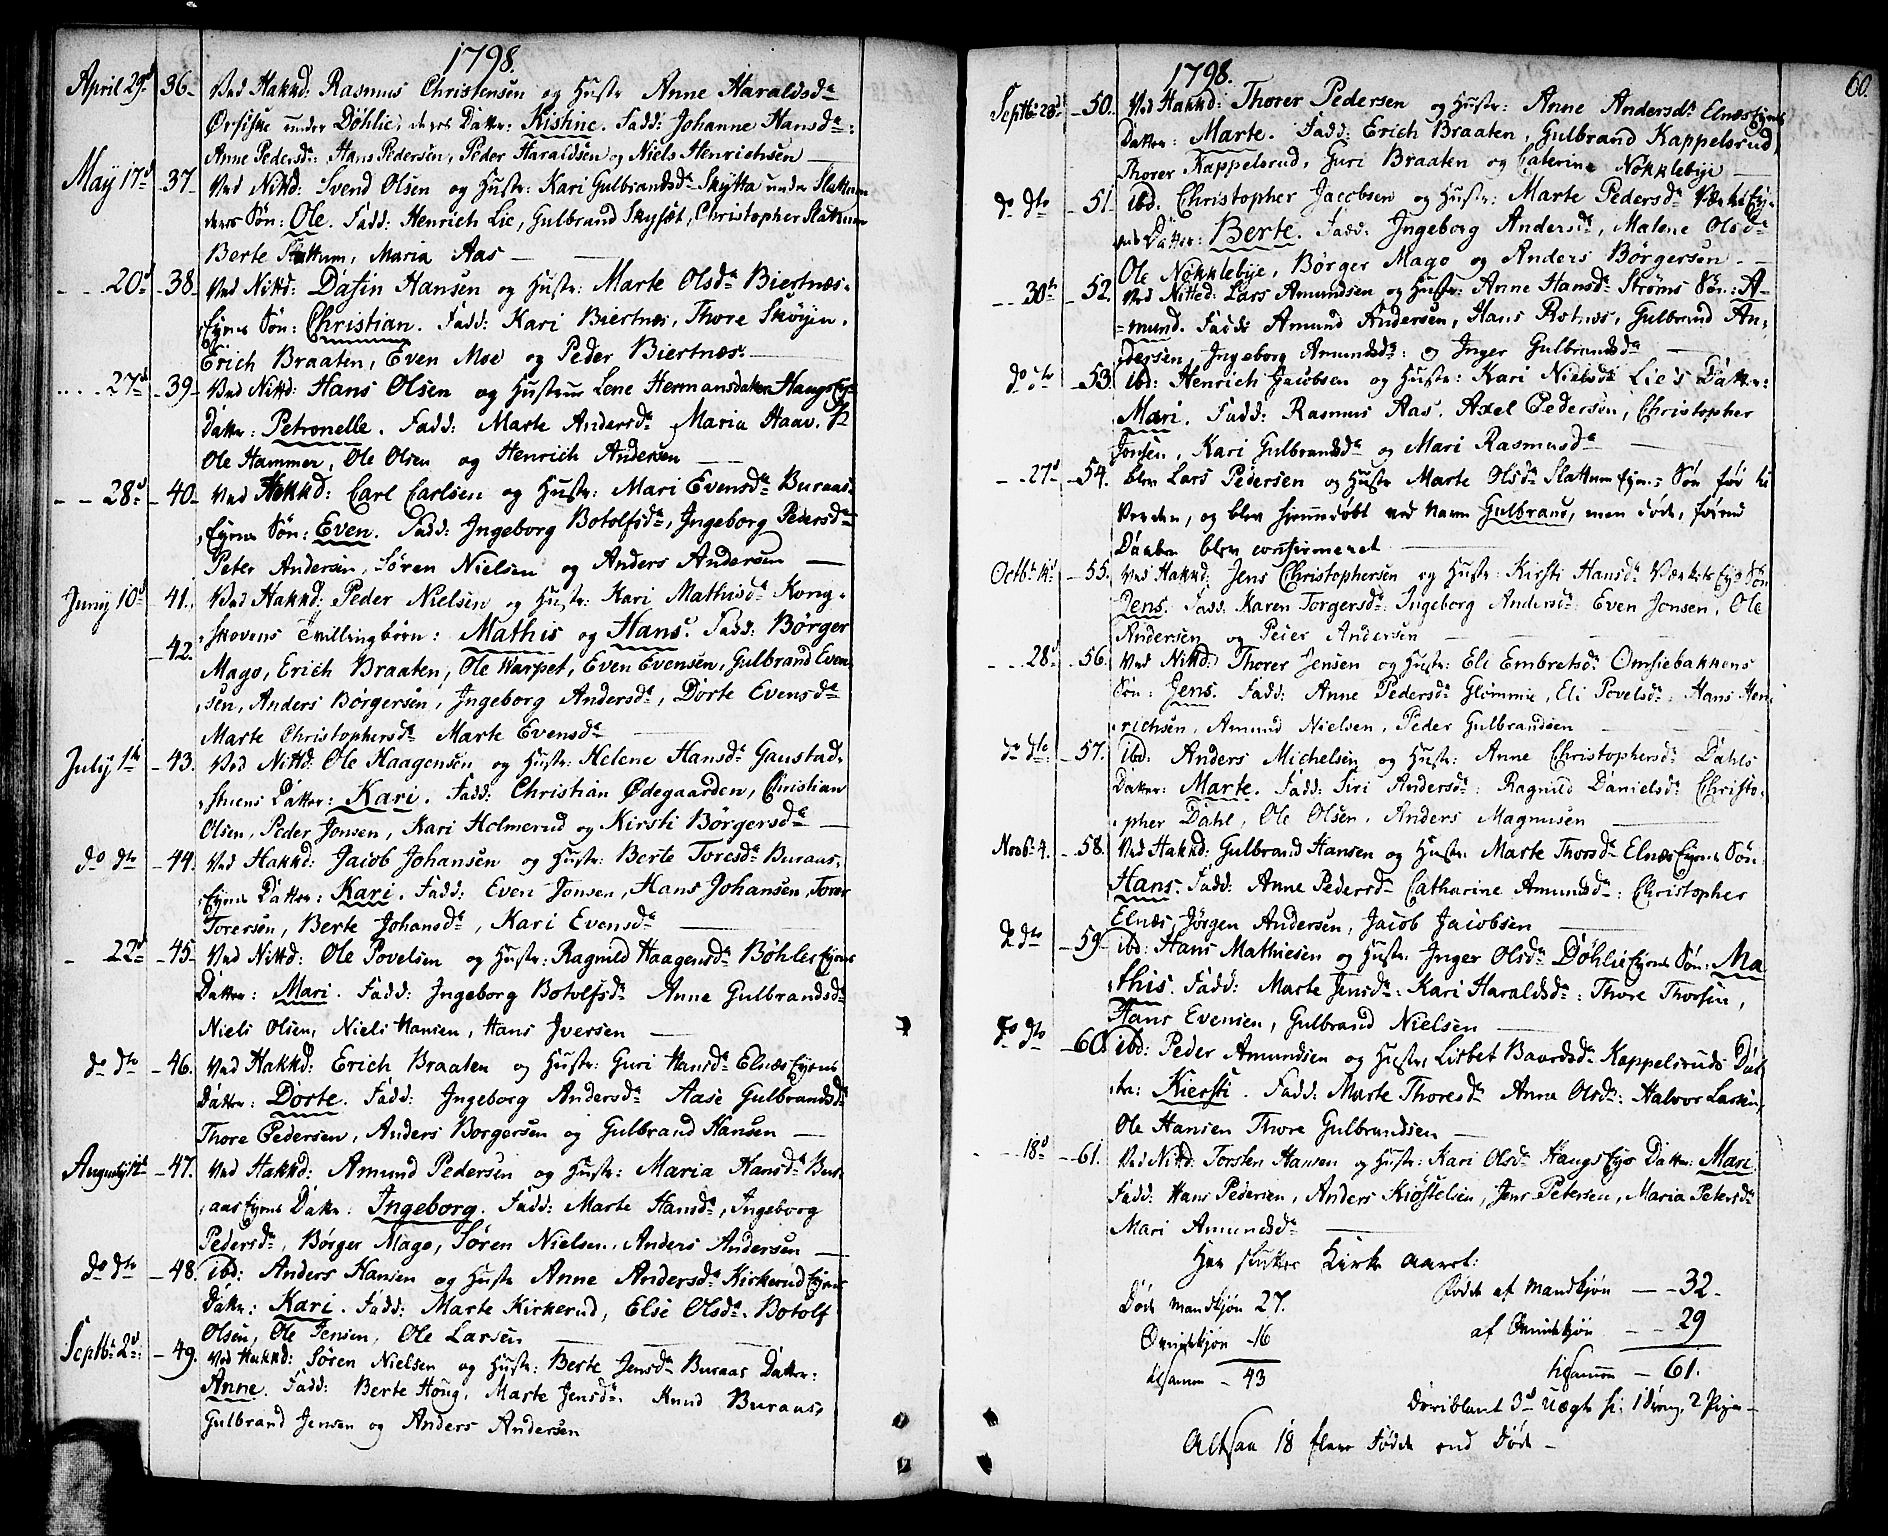 1798.
April 29d 36. Ved Hakkd: Rasmus Christensen og Hustr Anne Haraldsda
under Døhlie, deres Datter: Kistine. Fadd: Johanne Hansda:
Anne Pedersda: Hans Pedersen, Peder Haraldsen og Niels Henrichsen
May 17d 37. Ved Nittd: Svend Olsen og Hustr: Kari Gulbrandsda Skytta under Slattum
deres Søn: Ole. Fadd: Henrich Lie, Gulbrand Skysæt, Christopher Slattum
Berte Slattum, Maria Aas
20d 38. Ved Nittd: Dafin Hansen og Hustr: Marte Olsda Biertnæs-
Eyens Søn: Christian. Fadd: Kari Biertnæs, Thore Skøyen,
Erich Braaten, Even Moe og Peder Biertnæs.
27d 39. Ved Nittd: Hans Olsen og Hustrue Lene Hermansdatter Haugs Ey:
Datter: Petronelle. Fadd: Marte Andersda Maria Haav,
Ole Hammer, Ole Olsen og Henrich Andersen
28d 40. Ved Hakkd: Carl Carlsen og Hustr: Mari Evensda Buraas-
Eyens Søn: Even. Fadd: Ingeborg Botolfsda, Ingeborg Pedersda
Peter Andersen, Søren Nielsen og Anders Andersen
Juny 10d 41. Ved Hakkd: Peder Nielsen og Hustr: Kari Mathisda Kong-
42. skovens Tvillingbørn: Mathis og Hans. Fadd: Børger
Mago, Erich Braaten, Ole Warpet, Even Evensen, Gulbrand Even
sen, Anders Børgersen, Ingeborg Andersda, Dorte Evensda
Marte Christophersda Marte Evensda
July 1te 43. Ved Nittd: Ole Haagensen og Hustr: Helene Hansda Gaustad-
stuens Datter: Kari. Fadd: Christian Ødegaarden, Christian
Olsen, Peder Jonsen, Kari Holmerud og Kirsti Børgersda
do dto 44. Ved Hakkd: Jacob Johansen og Hustr: Berte Toresda Buraas-
Eyens Datter: Kari. Fadd: Even Jonsen, Hans Johansen, Torer
Torersen, Berte Johansda, Kari Evensda
22d 45. Ved Nittd: Ole Povelsen og Hustr: Ragnild Haagensda Bøhler Eyens
Datter: Mari. Fadd: Ingeborg Botolfsda Anne Gulbrandsda
Niels Olsen, Niels Hansen, Hans Iversen
do dto 46. Ved Hakkd: Erich Braaten og Hustr: Guri Hansda Elnæs Eyens
Datter: Dorte. Fadd: Ingeborg Andersda Aase Gulbrandsda
Thore Pedersen, Anders Borgersen og Gulbrand Hansen
47. Ved Hakkd: Amund Pedersen og Hustr: Maria Hansda Bur-
aas Eyens Datter: Ingeborg. Fadd: Marte Hansda, Ingeborg
Pedersda, Børger Mago, Søren Nielsen, Anders Andersen
do dto 48. ibd: Anders Hansen og Hustr Anne Andersda Kirkerud Eyens
Datter: Kari. Fadd: Marte Kirkerud, Else Olsda. Botolf
Olsen, Ole Jensen, Ole Larsen
Septbr 2d: 49. Ved Hakkd: Søren Nielsen og Hustr: Berte Jensda Buraas Datter:
Anne. Fadd: Berte Høug, Marte Jensda. Knud Buraas,
Gulbrand Jensen og Anders Andersen
60.
1798.
Septbr 23d 50. Ved Hakkd: Thorer Pedersen og Hustr: Anne Andersda Elnæs Eyens
Datter: Marte. Fadd: Erich Braaten, Gulbrand Kappelsrud,
Thorer Kappelsrud, Guri Braaten og Caterine Nøkklebye
do dto 51. ibd: Christopher Jacobsen og Hustr: Marte Pedersda Værkets Ey-
Datter: Berte. Fadd: Ingeborg Andersda, Malene Olsda
Ole Nøkklebye, Børger Mago og Anders Børgersen
30te 52. Ved Nitted: Lars Amundsen og Hustr: Anne Hansda Strøms Søn: A-
=mund. Fadd: Amund Andersen, Hans Rotnes, Gulbrand An-
dersen, Ingeborg Amundsda: og Inger Gulbrandsda
do dto 53. ibd: Henrich Jacobsen og Hustr: Kari Nielsda Lie's Datter:
Mari. Fadd: Rasmus Aas. Axel Pedersen, Christopher
Jonsen, Kari Gulbrandsda og Mari Rasmusda
27d 54. blev Lars Pedersen og Hustr Marte Olsda Slattum Eyens Søn før til
Verden, og blev hjemmedøbt ved Navn Gulbrand, men døde, førend
Daaben blev confirmeret
Octbr 14d 55. Ved Hakkd: Jens Christophersen og Hustr: Kirsti Hansda Værkets Eye Søn
Jens. Fadd: Karen Torgersda: Ingeborg Andersda: Even Jonsen, Ole
Andersen og Peter Andersen
28d 56. Ved Nittd: Thorer Jensen og Hustr: Eli Embretsda Omsiebakkens
Søn: Jens. Fadd: Anne Pedersda Glømmie, Eli Povelsda, Hans Hen-
richsen, Amund Nielsen, Peder Gulbrandsen
do dto 57. ibd: Anders Michelsen og Hustr: Anne Christophersda Dahls
Datter: Marte. Fadd: Siri Andersda: Ragnild Danielsda Christo-
pher Dahl, Ole Olsen, Anders Magnusen
Novbr 4. 58. Ved Hakkd: Gulbrand Hansen og Hustr: Marte Thorsda Elnæs Eyens Søn:
Hans. Fadd: Anne Pedersda Catharine Amundsda: Christopher
Elnæs, Jørgen Andersen, Jacob Jacobsen
do dto 59. ibd: Hans Mathiesen og Hustr: Inger Olsda Døhlie Eyens Søn: Ma
this. Fadd: Marte Jensda: Kari Haraldsda: Thore Thorsen,
Hans Evensen, Gulbrand Nielsen
do dto 60. ibd: Peder Amundsen og Hustr: Lisbet Baardsda Kappelsruds Dat
ter: Kiersti. Fadd: Marte Thoresda Anna Olsda: Halvor Larsen,
Ole Hansen Thore Gulbrandsen
18d 61. Ved Nittd: Torsten Hansen og Hustr: Kari Olsda Haugs Eye Datter: Mari.
Fadd: Hans Pedersen, Anders Kiøstelsen, Jens Petersen, Maria Petersda
Mari Amundsda
Her slutter Kirke Aaret:
Døde Mandkjøn 27. Fødde af Mandkjøn 32.
Qvindekjøn 16 af Qvindekjøn 29
tilsamm 43 tilsamm 61.
Deriblant 3d Uægte: 1 Dreng, 2 Piger
Altsaa 18 flere Fødde end Døde